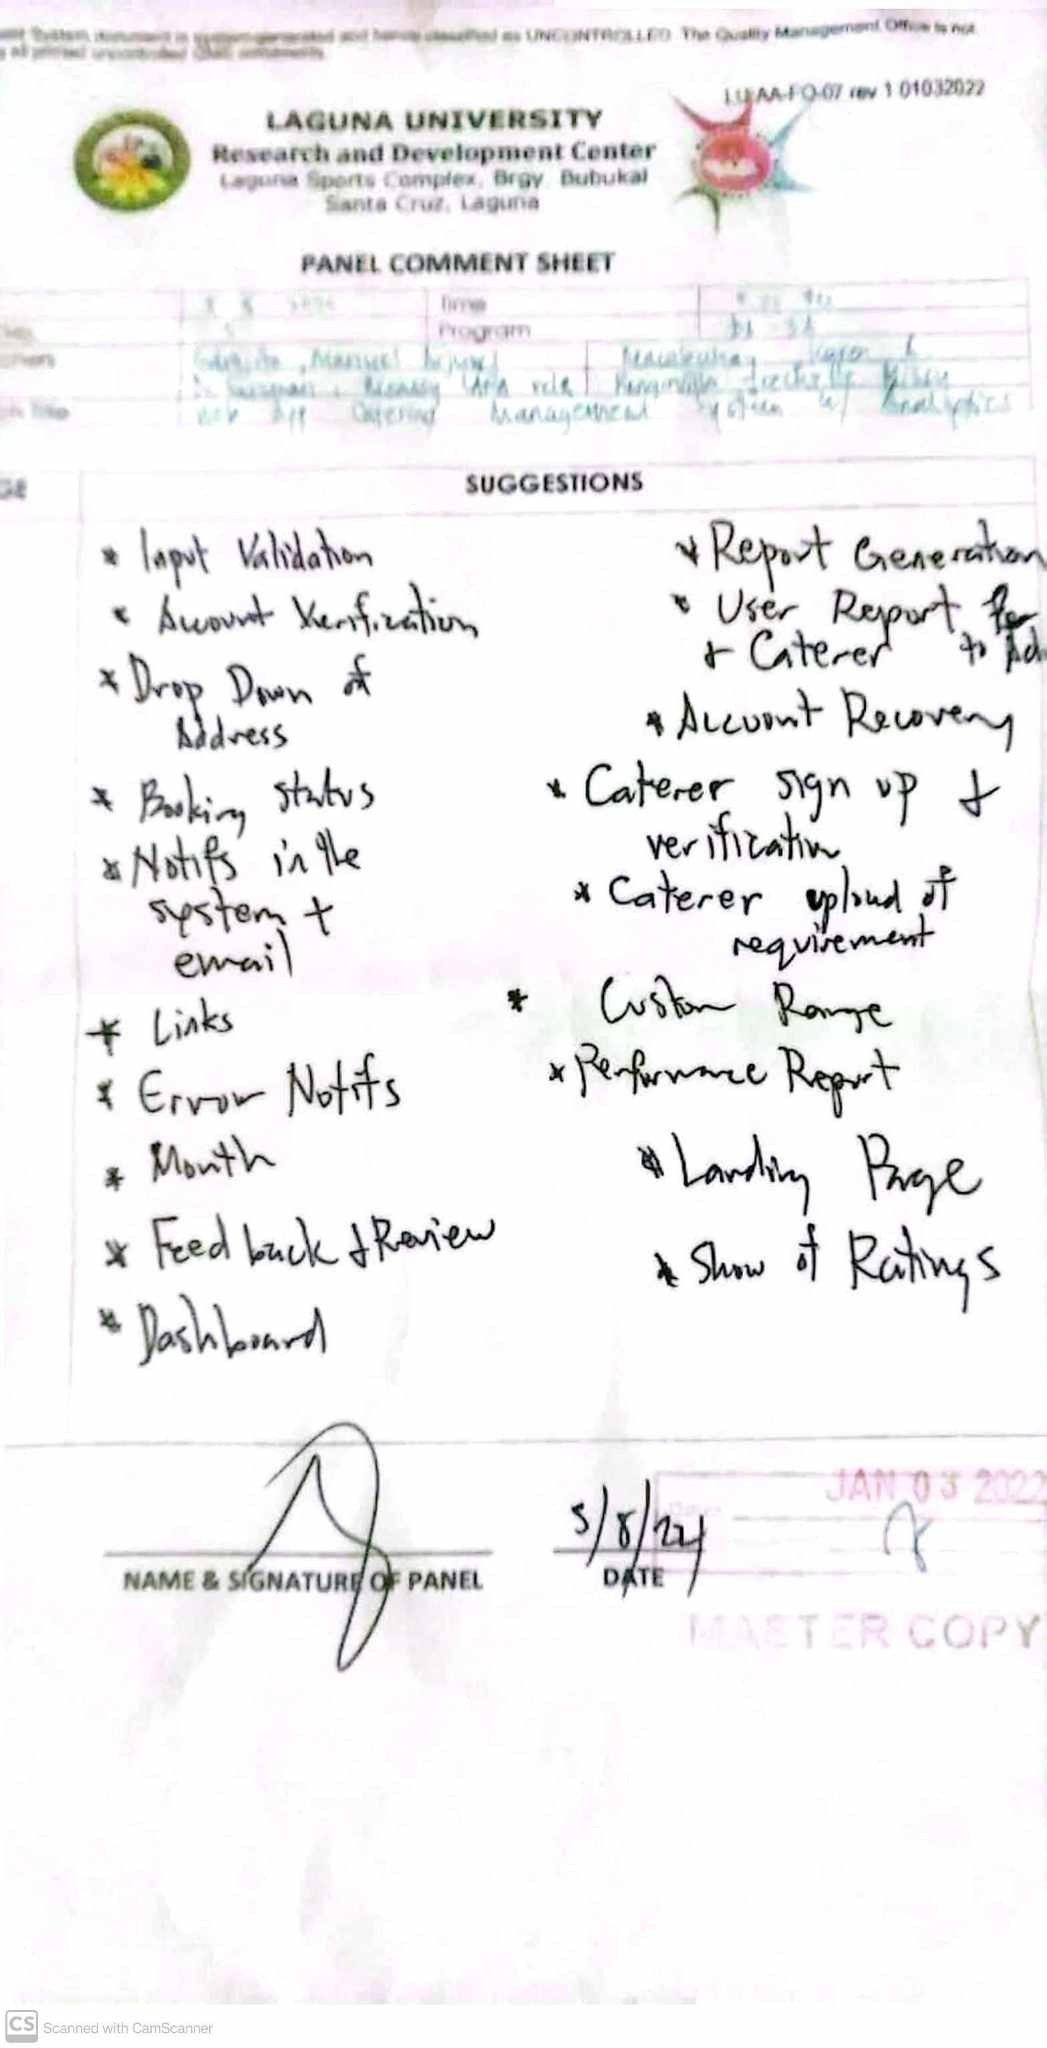 System document is system-generated and hence classified as UNCONTROLLED. The Quality Management Office is not
all printed uncontrolled
LU-AA-FO-07 rev 1 01032022
LAGUNA UNIVERSITY
Research and Development Center
Laguna Sports Complex, Brgy. Bubukal
Santa Cruz, Laguna
PANEL COMMENT SHEET
Time
Program
Manuel
App Catering Management System w/ Analytics
SUGGESTIONS
* Input Validation
* Account Verification
* Drop Down of
Address
* Booking status
* Notifs in the
system +
email
* Links
* Error Notifs
* Month
* Feedback & Review
* Dashboard
* Report Generation
* User Report for
& Caterer to Ad
* Account Recovery
* Caterer sign up &
verification
* Caterer upload of
requirement
* Custom Range
* Performance Report
* Landing Page
* Show of Ratings
5/8/24
NAME & SIGNATURE OF PANEL
DATE
JAN 03 2022
MASTER COPY
CS Scanned with CamScanner